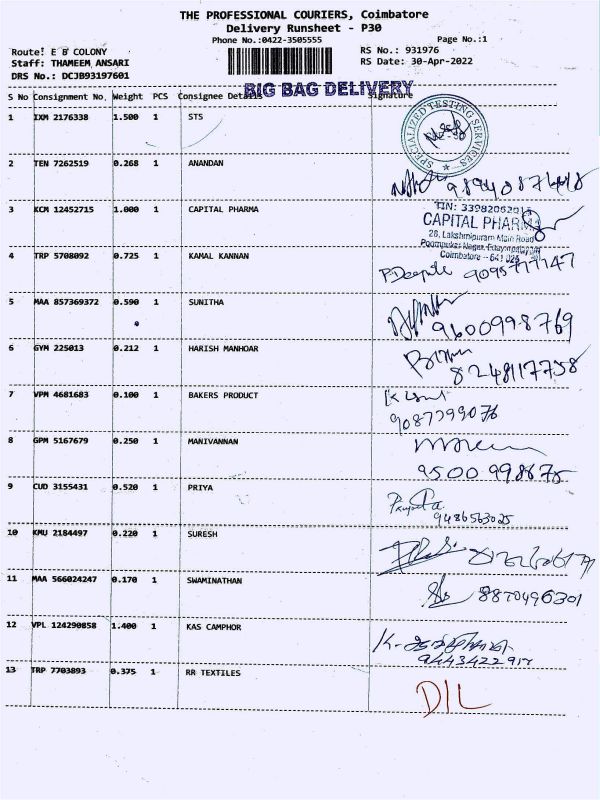 THE PROFESSIONAL COURIERS, Coimbatore
Delivery Runsheet - P30
Phone No.:0422-3505555
Page No.:1
Route: E B COLONY
RS No.: 931976
Staff: THAMEEM ANSARI
RS Date: 30-Apr-2022
DRS No.: DCJB93197601
BIG BAG DELIVERY
S No Consignment No. Weight PCS Consignee Details Signature
1 IXM 2176338 1.500 1 STS
SPECIALIZED TESTING SERVICES
2 TEN 7262519 0.268 1 ANANDAN
3 KCM 12452715 1.000 1 CAPITAL PHARMA
TIN: 33982062015
CAPITAL PHARMA
28, Lakshmipuram Main Road
Coimbatore - 641 026
4 TRP 5708092 0.725 1 KAMAL KANNAN
P. Deepik 9095777147
5 MAA 857369372 0.590 1 SUNITHA
9600998769
6 GYM 225013 0.212 1 HARISH MANHOAR
8248117758
7 VPM 4681683 0.100 1 BAKERS PRODUCT
9087399076
8 GPM 5167679 0.250 1 MANIVANNAN
9500 998675
9 CUD 3155431 0.520 1 PRIYA
9486563025
10 KMU 2184497 0.220 1 SURESH
11 MAA 566024247 0.170 1 SWAMINATHAN
8870496301
12 VPL 124290858 1.400 1 KAS CAMPHOR
13 TRP 7703893 0.375 1 RR TEXTILES
D/L